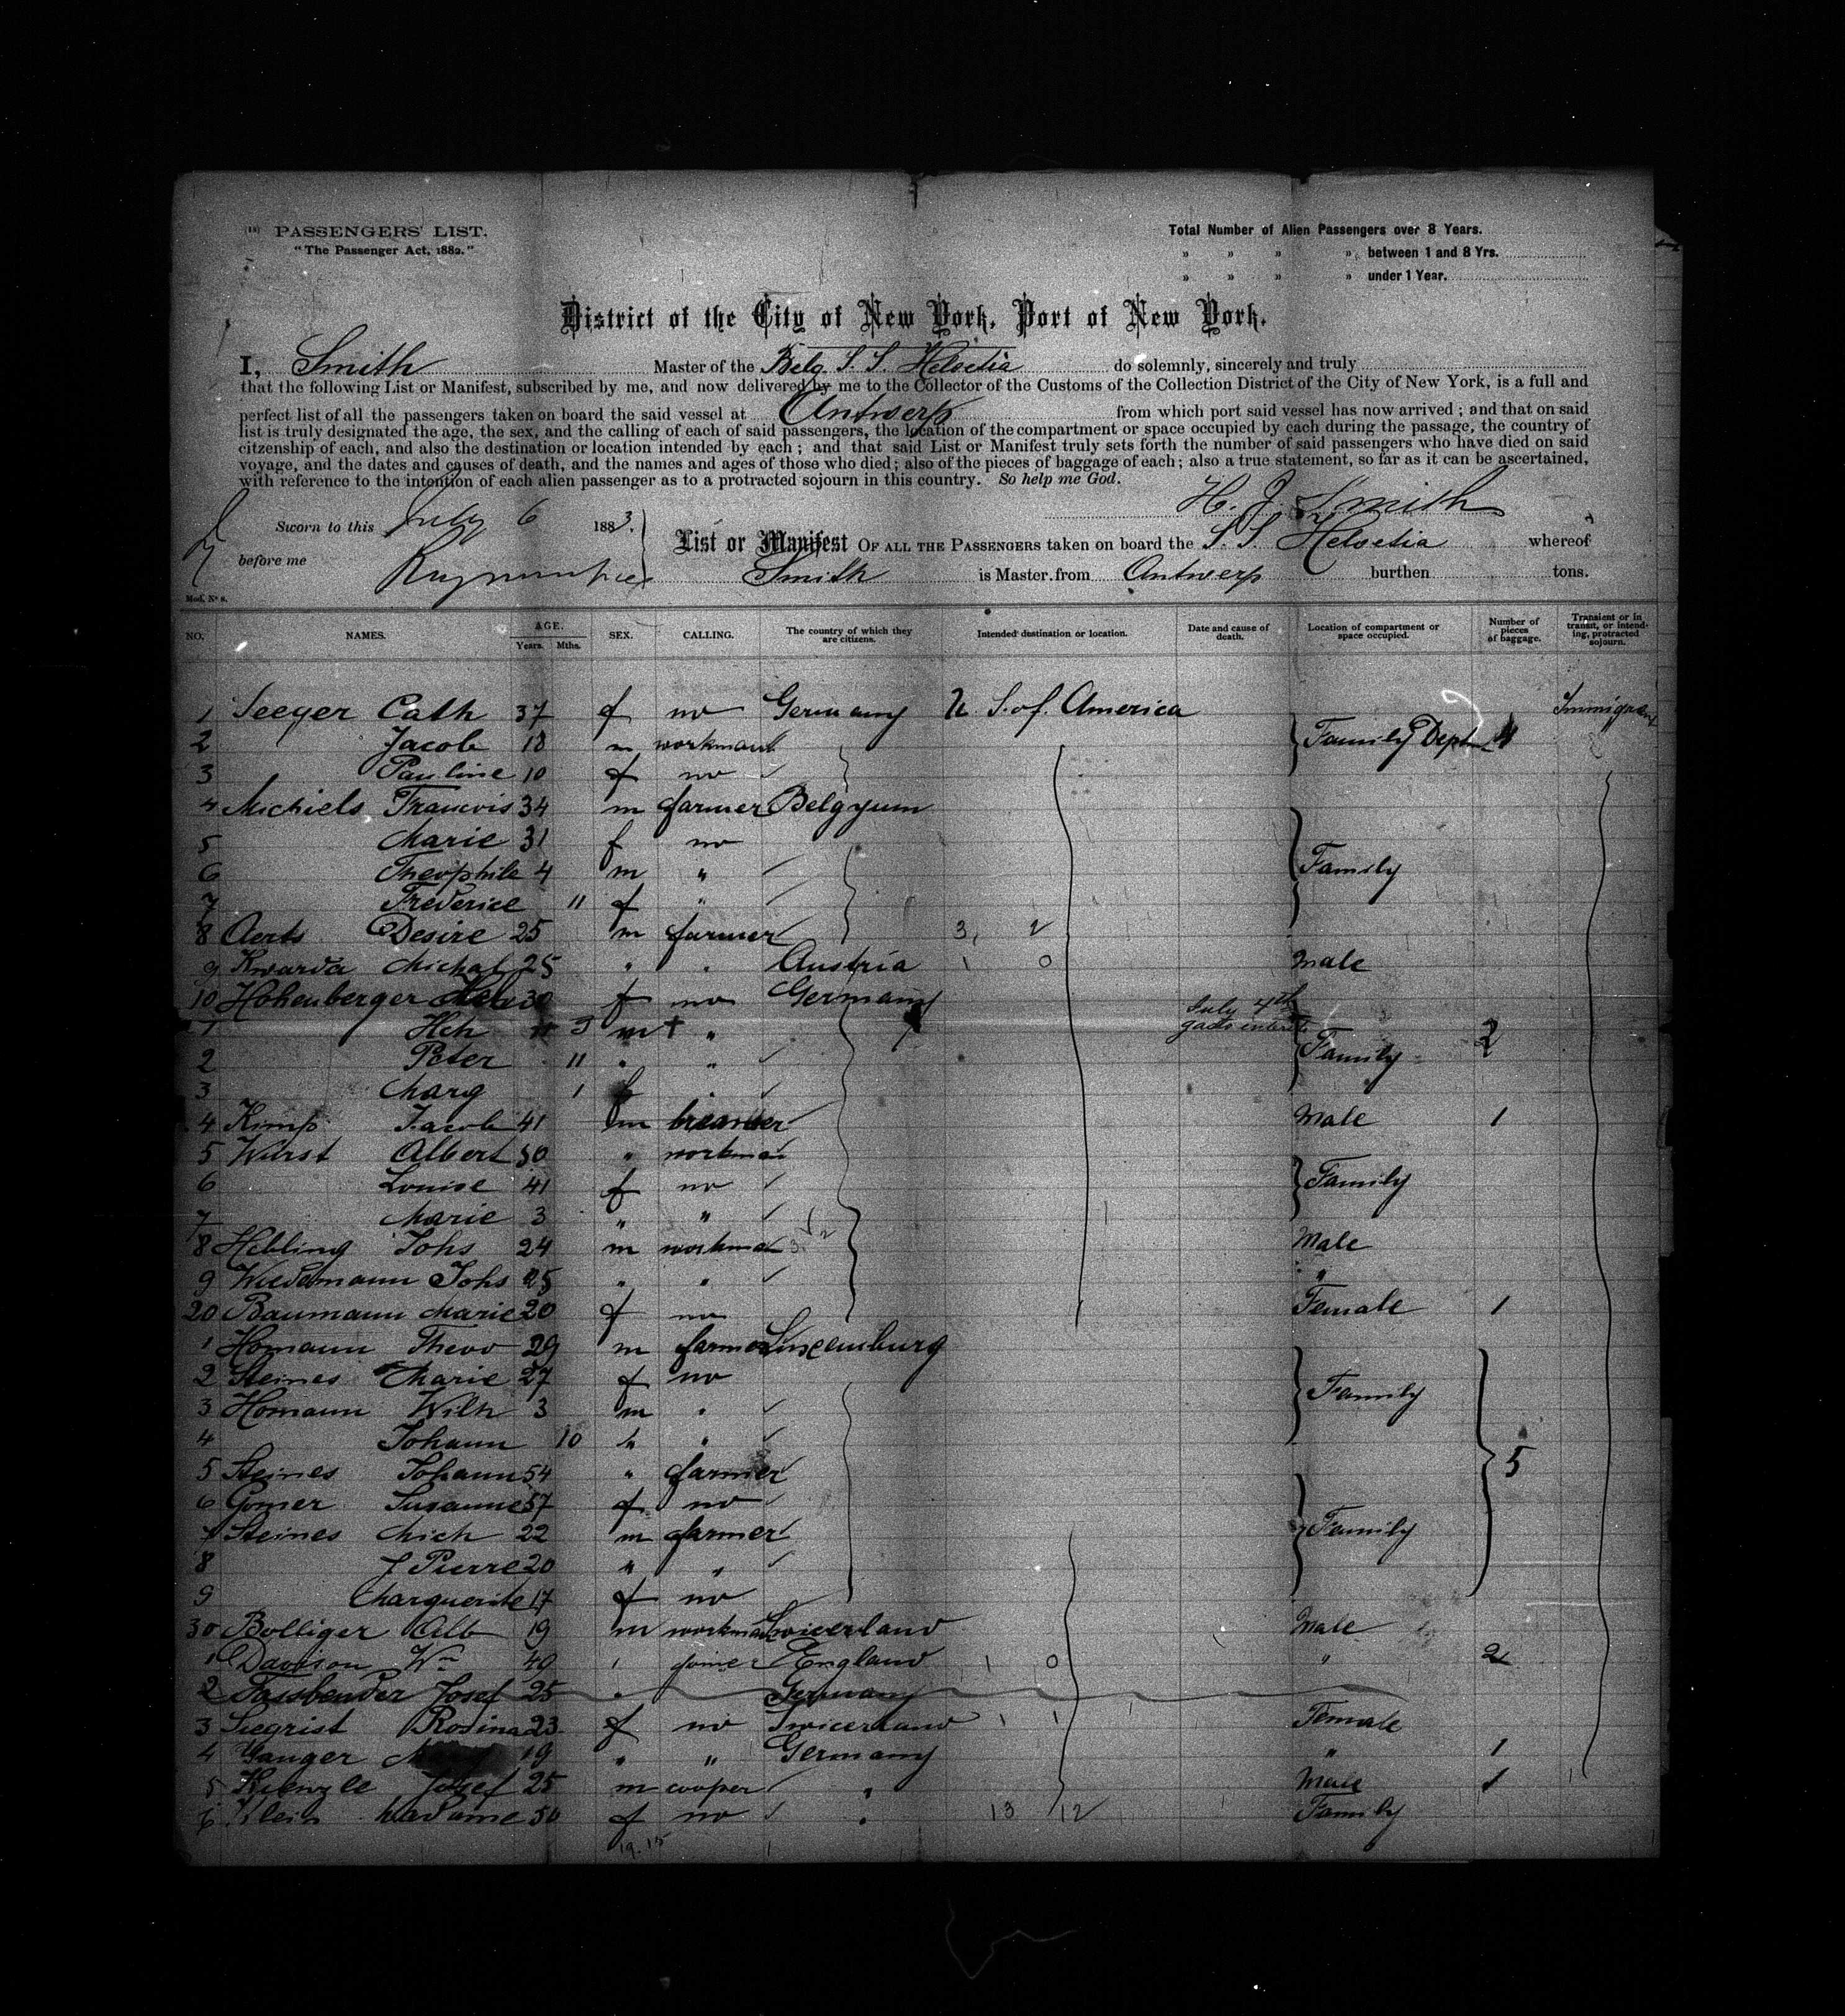 PASSENGERS' LIST.
"The Passenger Act, 1882."
Total Number of Alien Passengers over 8 Years.
" " " " between 1 and 8 Yrs.
" " " " under 1 Year.
District of the City of New York, Port of New York.
I, Smith Master of the Belg. S. S. Helvetia do solemnly, sincerely and truly
that the following List or Manifest, subscribed by me, and now delivered by me to the Collector of the Customs of the Collection District of the City of New York, is a full and
perfect list of all the passengers taken on board the said vessel at Antwerp from which port said vessel has now arrived; and that on said
list is truly designated the age, the sex, and the calling of each of said passengers, the location of the compartment or space occupied by each during the passage, the country of
citzenship of each, and also the destination or location intended by each; and that said List or Manifest truly sets forth the number of said passengers who have died on said
voyage, and the dates and causes of death, and the names and ages of those who died; also of the pieces of baggage of each; also a true statement, so far as it can be ascertained,
with reference to the intention of each alien passenger as to a protracted sojourn in this country. So help me God.
H. J. Smith
Sworn to this July 6 1883.
before me
List or Manifest OF ALL THE PASSENGERS taken on board the S. S. Helvetia whereof
Smith is Master, from Antwerp burthen tons.
Mod. No 8.
NO. NAMES. AGE. Years. Mths. SEX. CALLING. The country of which they are citizens. Intended destination or location. Date and cause of death. Location of compartment or space occupied. Number of pieces of baggage. Transient or in transit, or intending, protracted sojourn.
1 Seeger Cath 37 f no Germany U. S. of America Immigrant
2 Jacob 18 m workman Family Dept
3 Pauline 10 f no
4 Michiels Francois 34 m farmer Belgyum
5 Marie 31 f no
6 Theophile 4 m " Family
7 Frederice 11 f "
8 Aerts Desire 25 m farmer 3, 2
9 Kwarda Michal 25 " " Austria 1 0 Male
10 Hohenberger 30 f no Germany
1 Hch 3 m + " July 4th
2 Peter 11 " " Family 2
3 Marg 1 f "
4 Kimp Jacob 41 m Male 1
5 Wurst Albert 50 " workman
6 Louise 41 f no Family
7 Marie 3 " "
8 Hebling Johs 24 m workman Male
9 Wiedemann Johs 25 " " "
20 Baumann Marie 20 f no Female 1
1 Homann Theod 29 m farmer Luxemburg
2 Steines Marie 27 f no Family
3 Homann Wilh 3 m "
4 Johann 10 " "
5 Steines Johann 54 " farmer 5
6 Gomer Susanne 57 f no
7 Steines Mich 22 m farmer Family
8 J Pierre 20 " "
9 Marguerite 17 f no
30 Bolliger Alb 19 m workman Swicerland Male
1 Davison Wm 49 " joiner England 1 0 " 2
2 Fassbender Josef 25 " Germany
3 Siegrist Rosina 23 f no Swicerland 1 1 Female
4 Ganger 19 " " Germany " 1
5 Kienzle Josef 25 m cooper " Male 1
6 Klein Madame 50 f no " 13 12 Family
19. 15